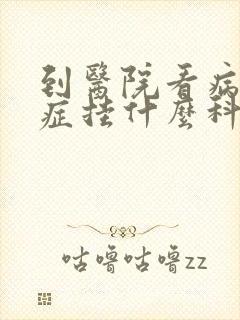 到醫院看病
症挂什麼科
咕噜咕噜zz